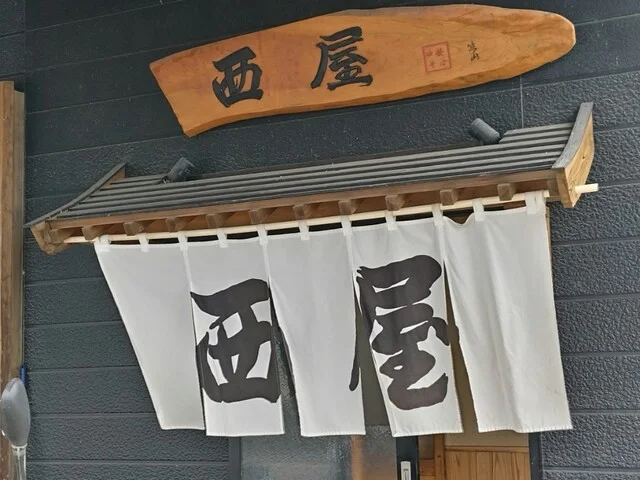 西屋
西屋